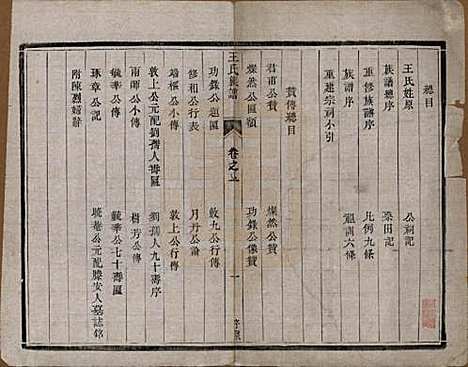 總目
王氏姓原
公祠記
族譜總序
祭田記
重修族譜序
凡例九條
族譜序
祖訓六條
重建宗祠小引
賛傳總目
君甫公賛
燦然公賛
燦然公匾額
功錄公像賛
王氏族譜
卷之上
一
功錄公匾
敘九公行傳
修和公行表
月丹公論
端樞公小傳
敦上公行傳
敦上公元配劉孺人壽匾
劉孺人九十壽序
甫師公小傳
樹芳公傳
毓華公小傳
毓華公七十壽匾
珠章公記
曉巷公元配滕安人墓誌銘
附陳烈婦辭